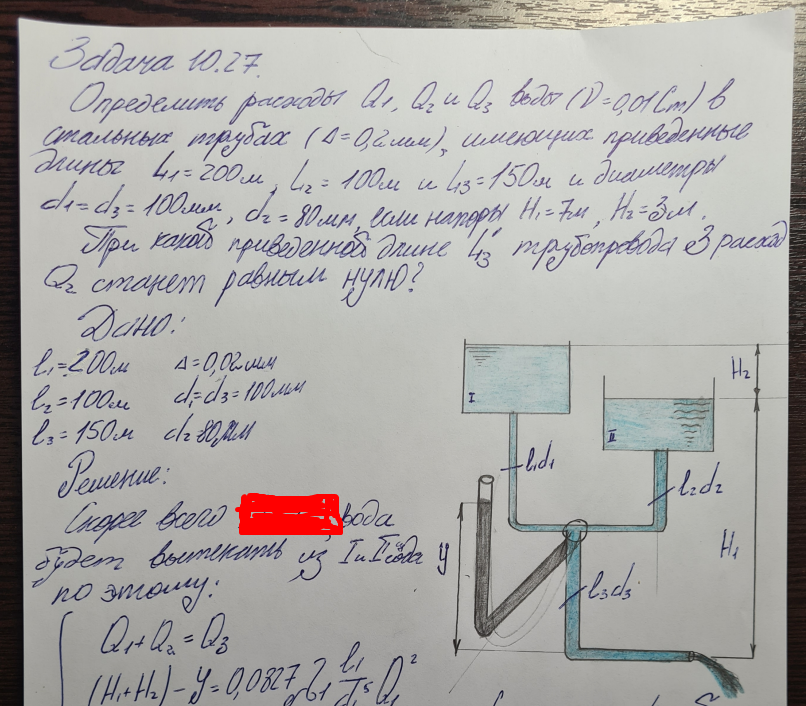 Задача 10.27.
Определить расходы Q1, Q2 и Q3 воды (ν=0,01 Ст) в
стальных трубах (Δ=0,2мм), имеющих приведенные
длины L1=200м, L2=100м и L3=150м и диаметры
d1=d3=100мм, d2=80мм, если напоры H1=7м, H2=3м.
При какой приведенной длине L3 трубопровода 3 расход
Q2 станет равным нулю?
Дано:
l1=200м Δ=0,02мм
l2=100м d1=d3=100мм
l3=150м d2=80мм
Решение:
Скорее всего вода
будет вытекать из I и II сосуда
по этому:
Q1+Q2=Q3
(H1+H2)-y=0,0827 λ1 l1/d1^5 Q1^2
I
II
H2
l1d1
l2d2
y
l3d3
H1